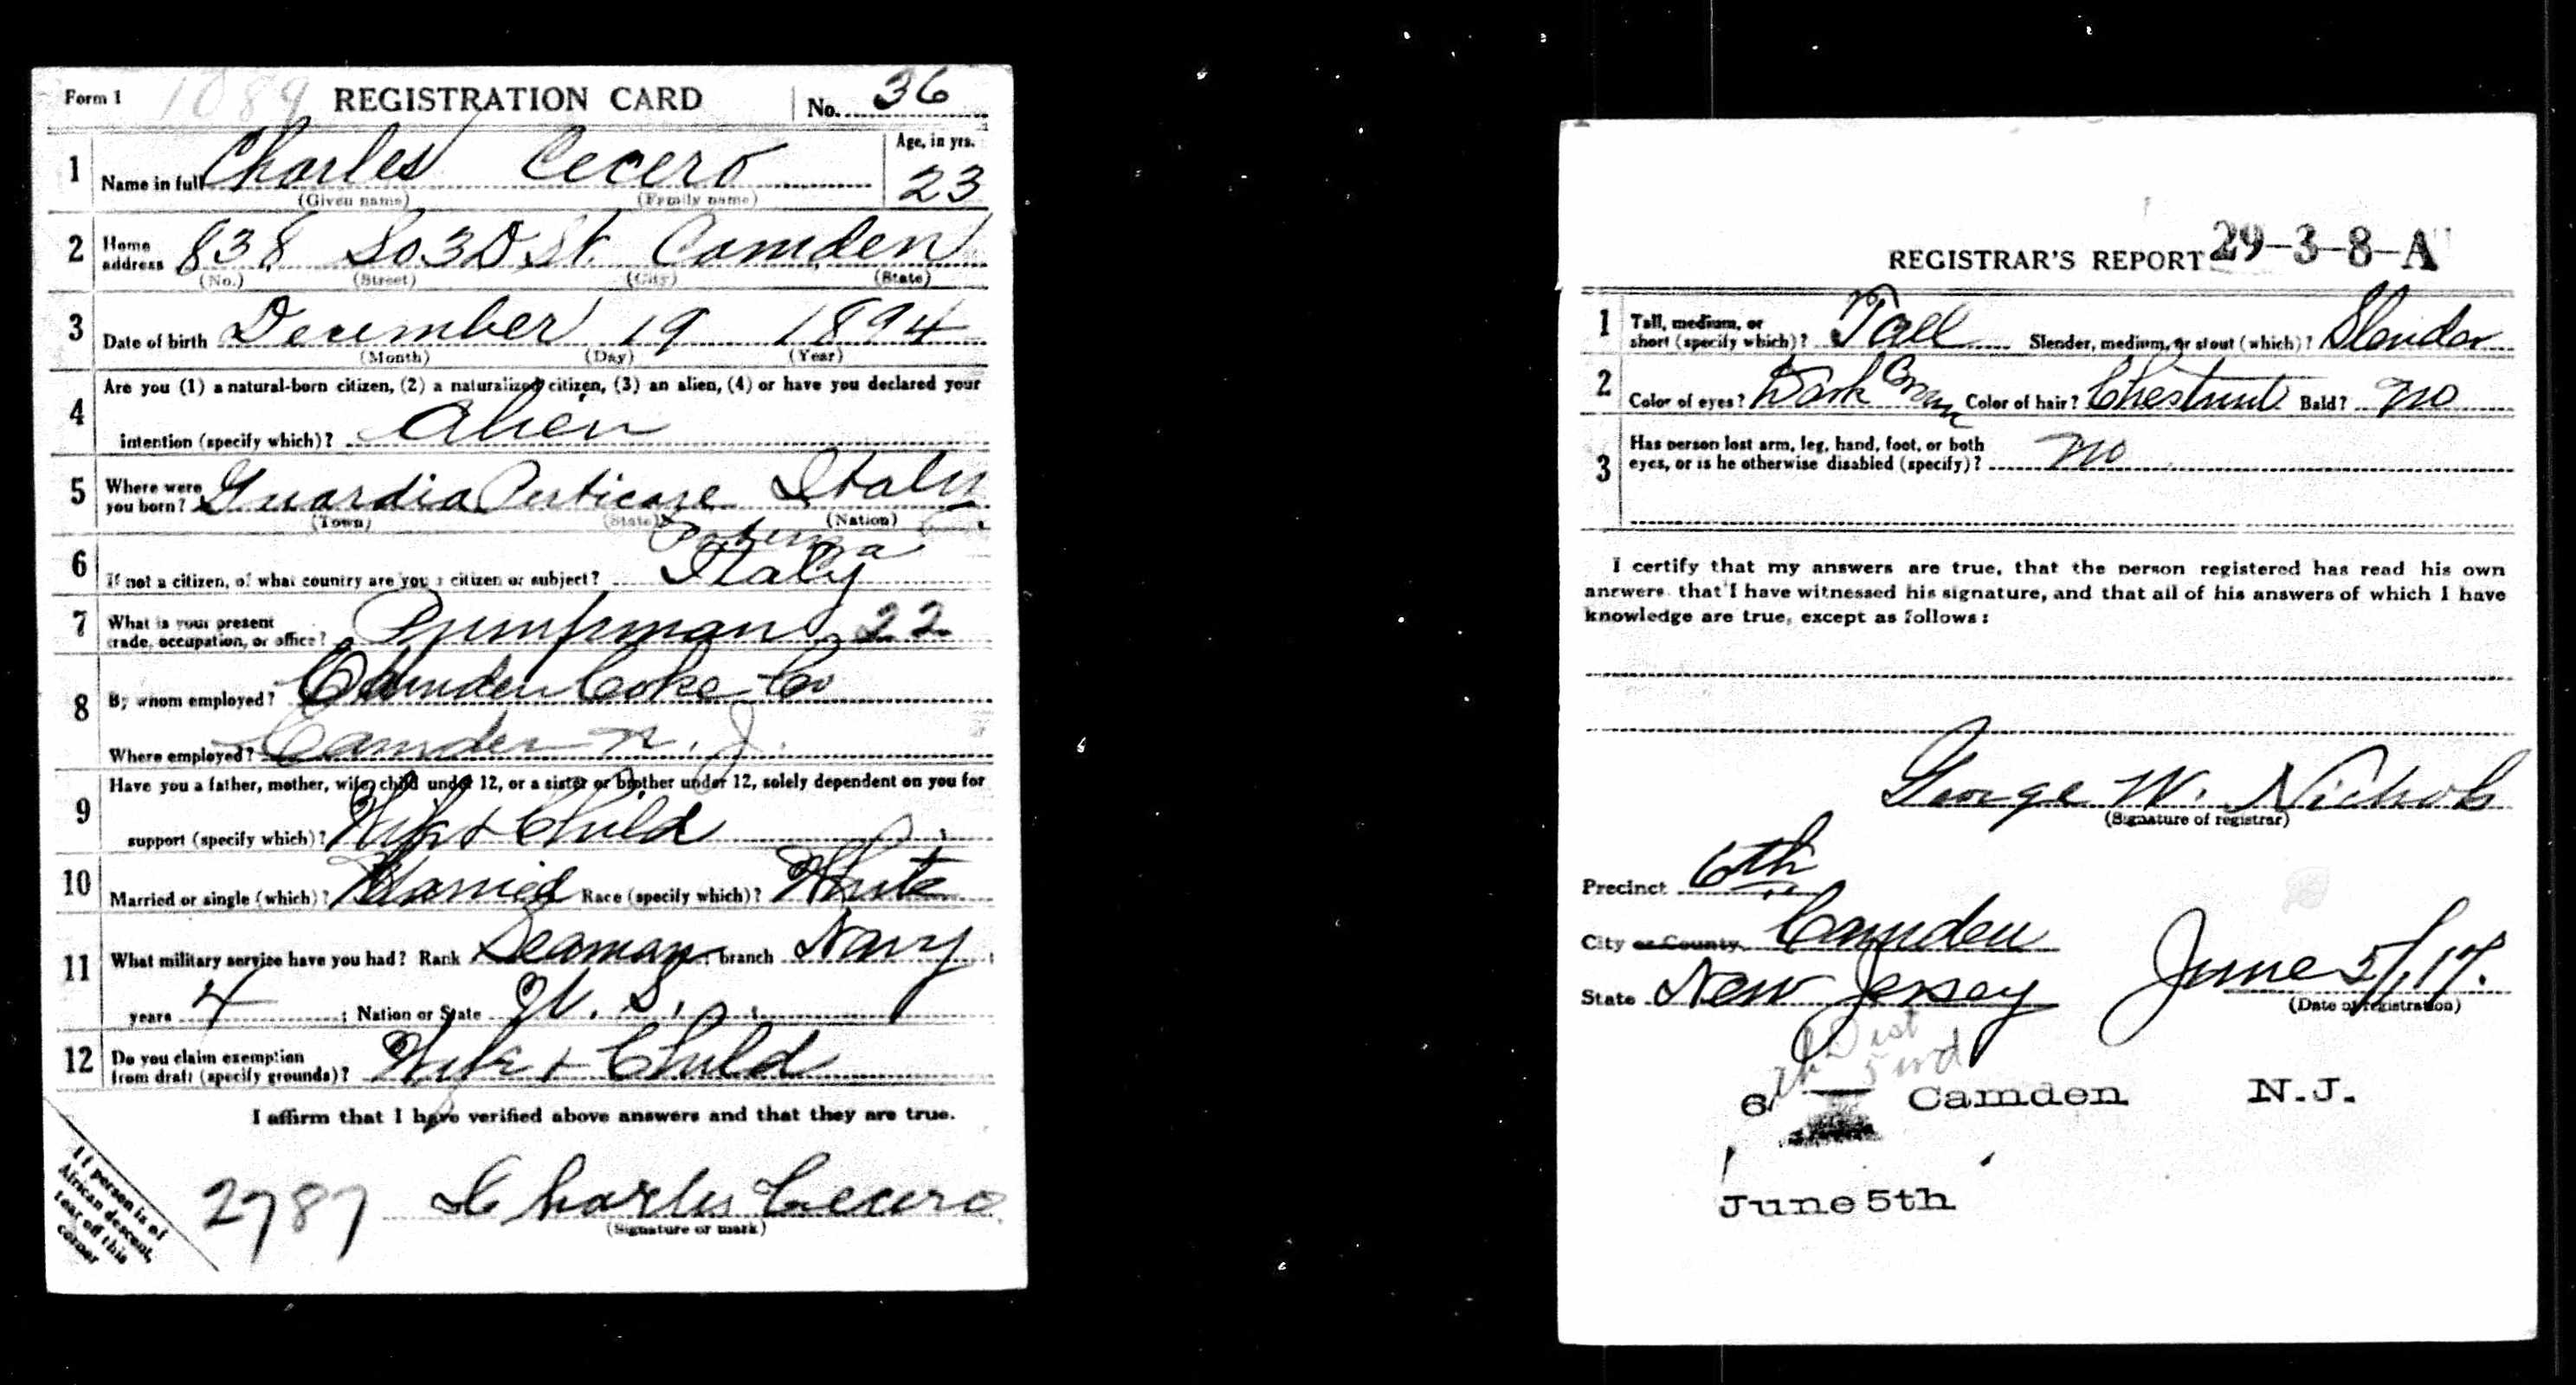 Form 1 1089 REGISTRATION CARD No. 36
1 Name in full Charles Cecero Age, in yrs. 23
(Given name) (Family name)
2 Home address 838 So 3D St. Camden
(No.) (Street) (City) (State)
3 Date of birth December 19 1894
(Month) (Day) (Year)
4 Are you (1) a natural-born citizen, (2) a naturalized citizen, (3) an alien, (4) or have you declared your
intention (specify which)? Alien
5 Where were you born? Guardia Perticare Italy
(Town) (State) (Nation)
Potenza
6 If not a citizen, of what country are you a citizen or subject? Italy
7 What is your present trade, occupation, or office? Pumpman 22
8 By whom employed? Camden Coke Co
Where employed? Camden N. J.
9 Have you a father, mother, wife, child under 12, or a sister or brother under 12, solely dependent on you for
support (specify which)? Wife & Child
10 Married or single (which)? Married Race (specify which)? White
11 What military service have you had? Rank Seaman; branch Navy;
years 4; Nation or State U. S.
12 Do you claim exemption from draft (specify grounds)? Wife & Child
I affirm that I have verified above answers and that they are true.
If person is of African descent, tear off this corner
2787 Charles Cecero
(Signature or mark)
REGISTRAR'S REPORT 29-3-8-A
1 Tall, medium, or short (specify which)? Tall Slender, medium, or stout (which)? Slender
2 Color of eyes? Dark Brown Color of hair? Chestnut Bald? no
3 Has person lost arm, leg, hand, foot, or both eyes, or is he otherwise disabled (specify)? no
I certify that my answers are true, that the person registered has read his own
answers that I have witnessed his signature, and that all of his answers of which I have
knowledge are true, except as follows:
George W. Nichols
(Signature of registrar)
Precinct 6th
City or County Camden
State New Jersey June 5/17.
(Date of registration)
Dist
5 wd
6 Camden N.J.
June 5th